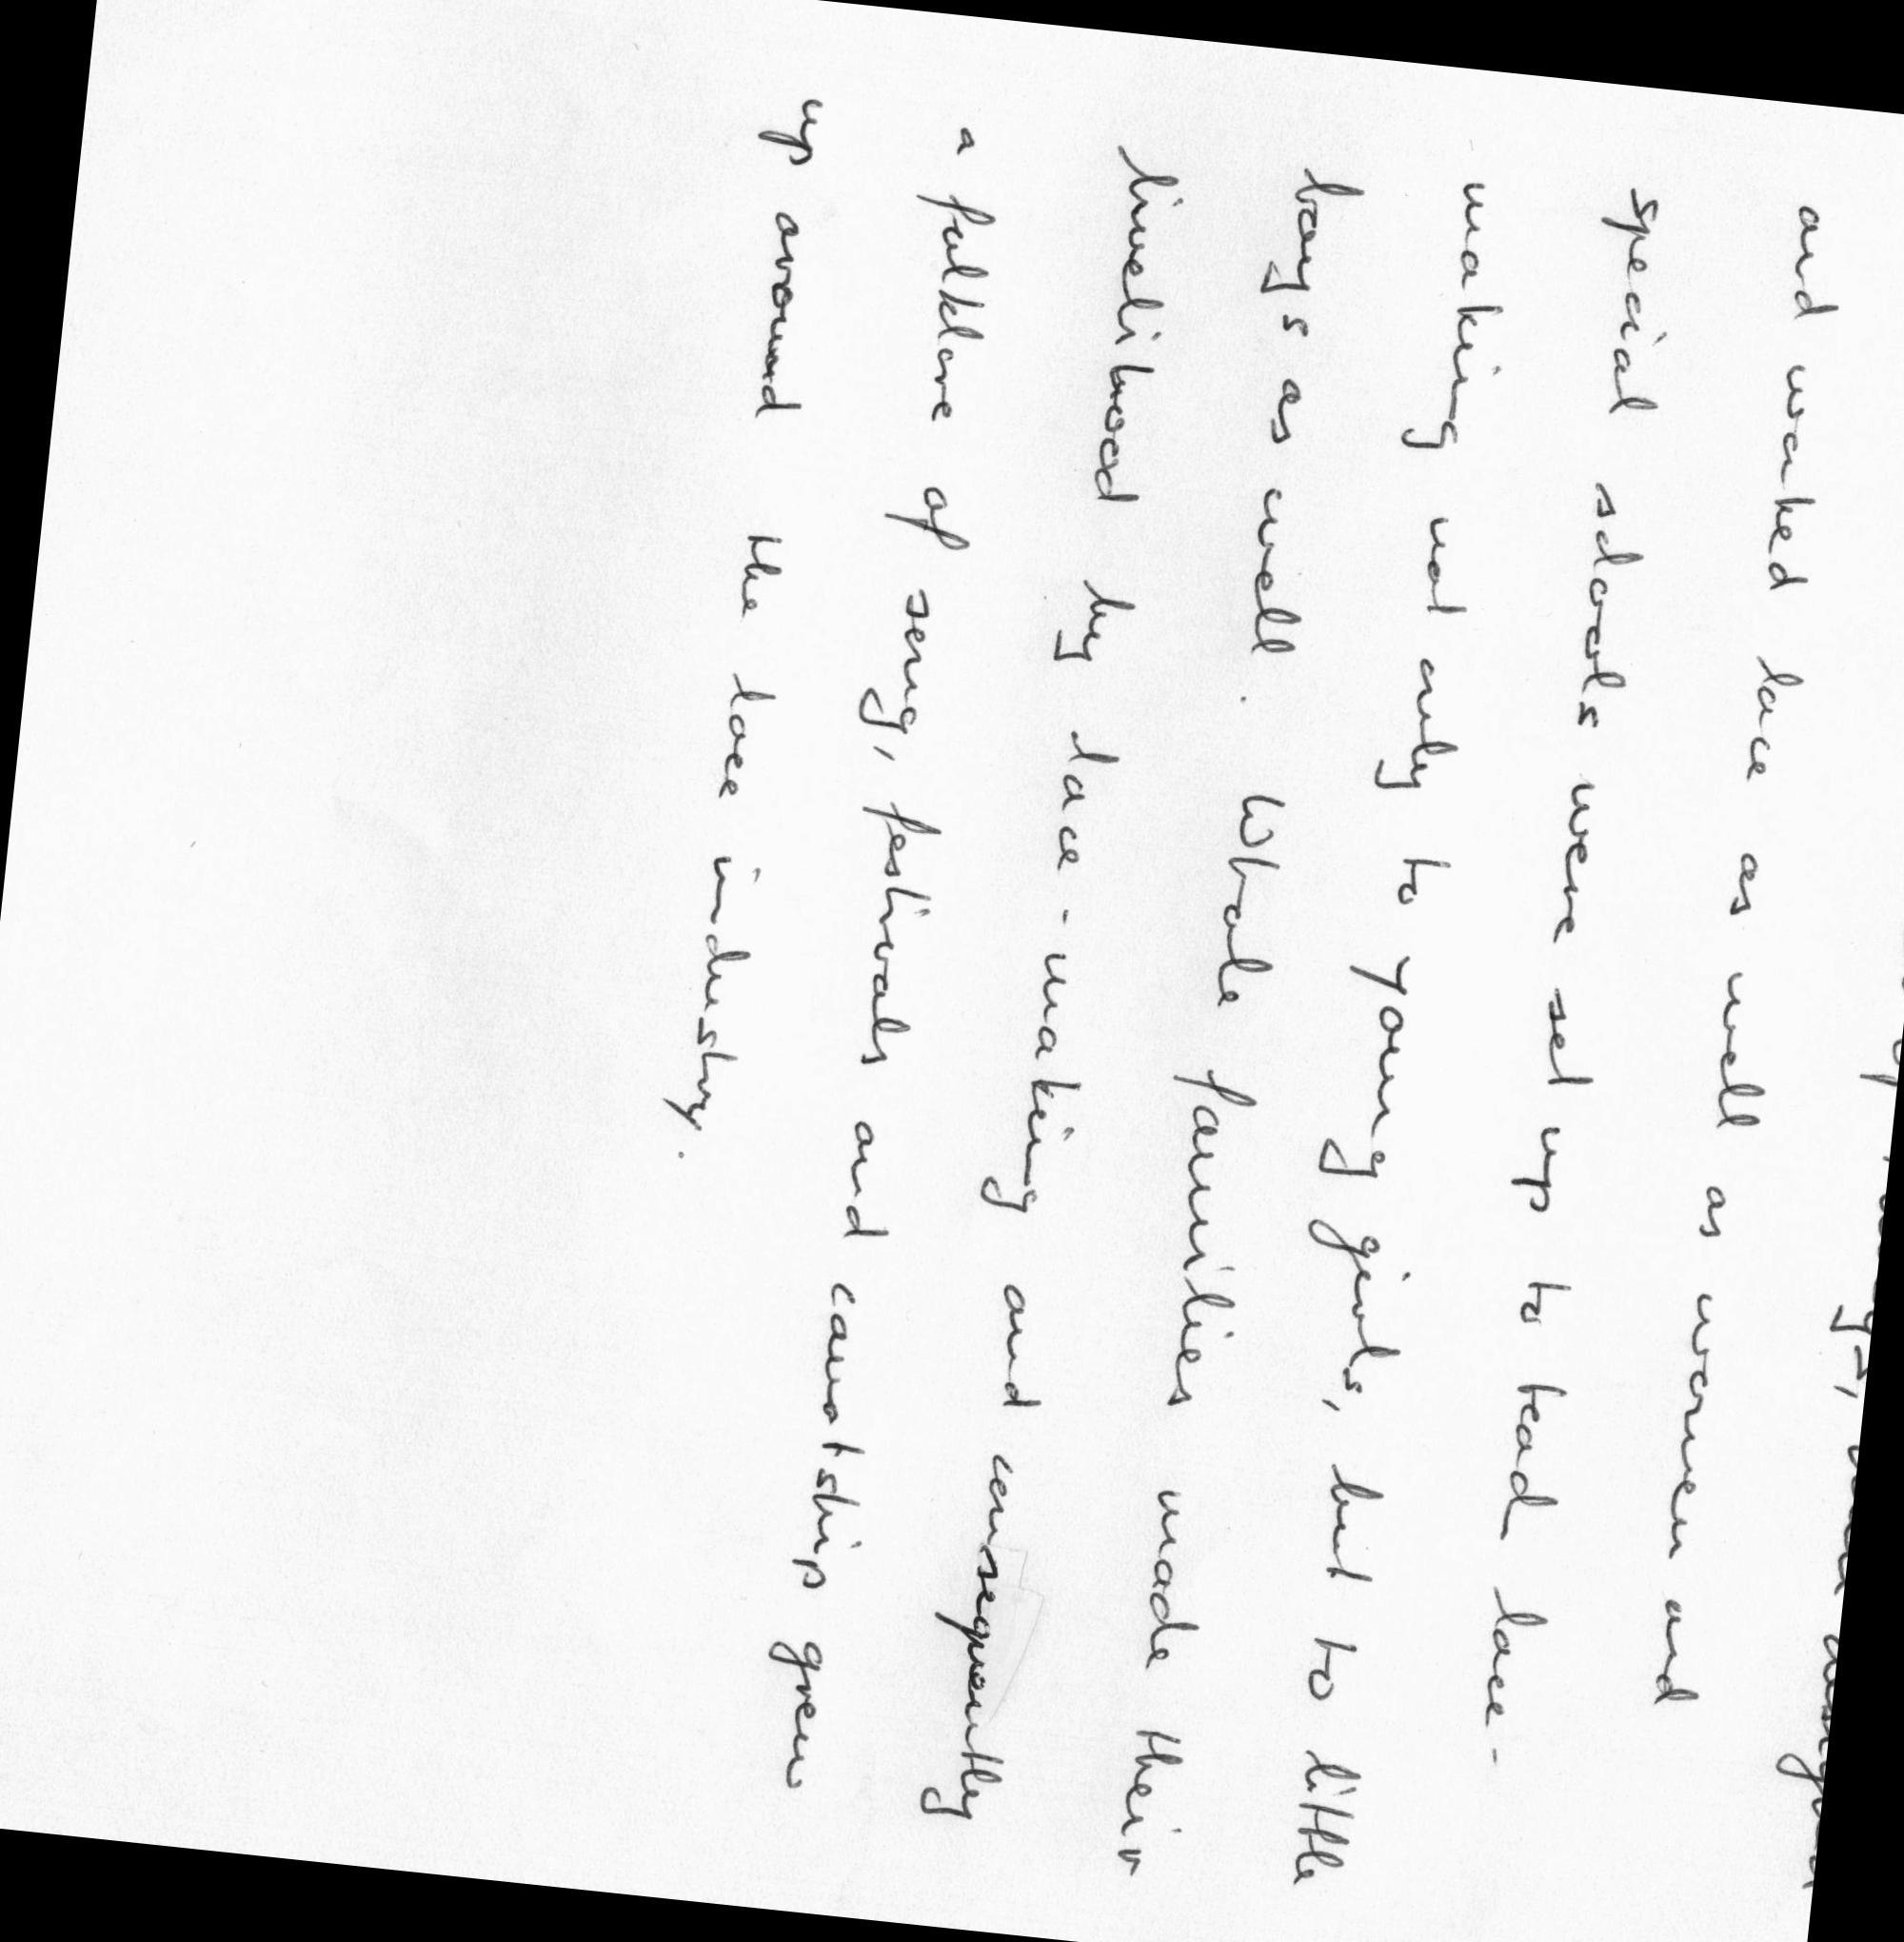 and worked lace as well as women and
special schools were set up to teach lace-
making not only to young girls, but to little
boys as well. Whole families made their
livelihood by lace-making and consequently
a folklore of song, festivals and courtships grew
up around the lace industry.